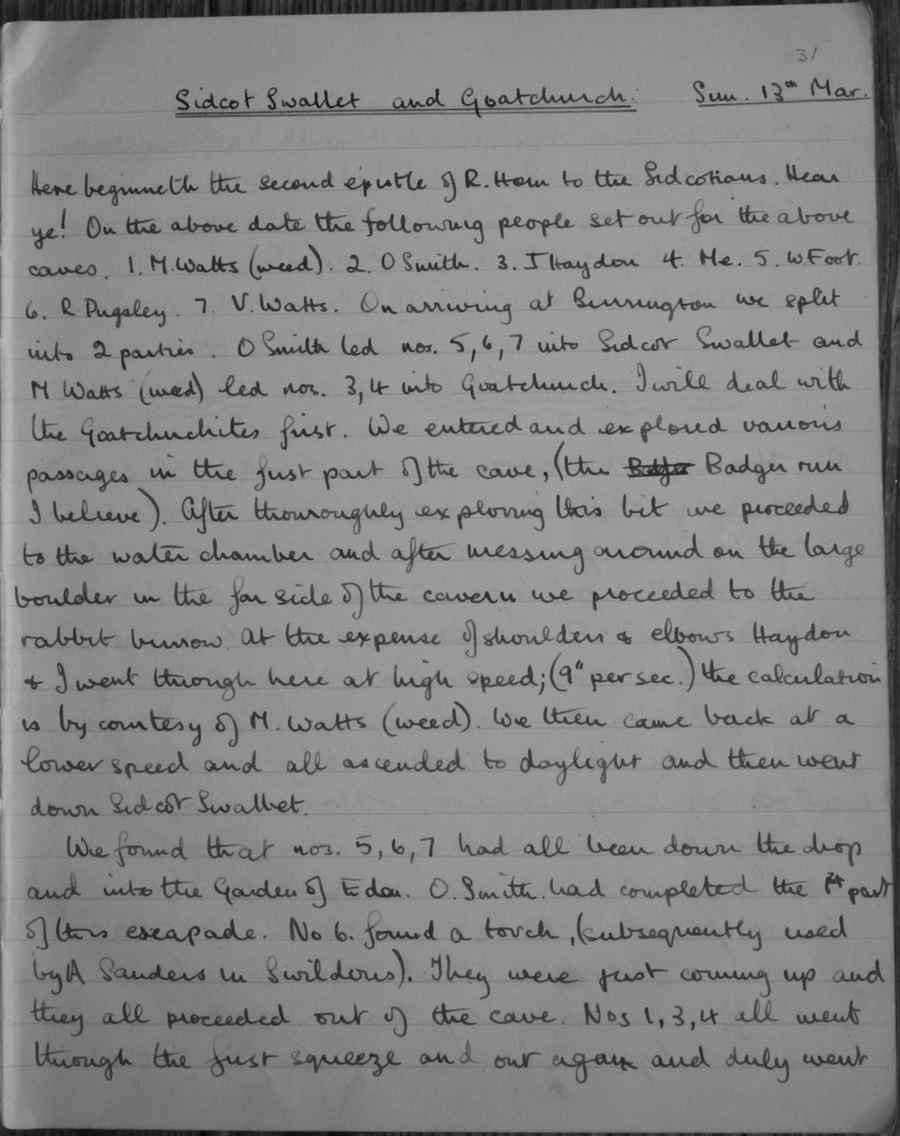 31
Sidcot Swallet and Goatchurch. Sun. 13th Mar.
Here beginneth the second epistle of R. Ham to the Sidcotians. Hear
ye! On the above date the following people set out for the above
caves. 1. M. Watts (weed). 2. O Smith. 3. J Haydon 4. Me. 5. W Foot.
6. R Pugsley. 7. V. Watts. On arriving at Burrington we split
into 2 parties. O Smith led nos. 5, 6, 7 into Sidcot Swallet and
M Watts (weed) led nos. 3, 4 into Goatchurch. I will deal with
the Goatchuchites first. We entered and explored various
passages in the first part of the cave, (the Badger run
I believe). After thouroughly exploring this bit we proceeded
to the water chamber and after messing around on the large
boulder in the far side of the cavern we proceeded to the
rabbit burrow. At the expense of shoulders & elbows Haydon
& I went through here at high speed; (9" per sec.) the calculation
is by courtesy of M. Watts (weed). We then came back at a
lower speed and all ascended to daylight and then went
down Sidcot Swallet.
We found that nos. 5, 6, 7 had all been down the drop
and into the Garden of Eden. O. Smith. had completed the 1st part
of this escapade. No 6. found a torch, (subsequently used
by A Sanders in Swildons). They were just coming up and
they all proceeded out of the cave. Nos 1, 3, 4 all went
through the first squeeze and out again and duly went